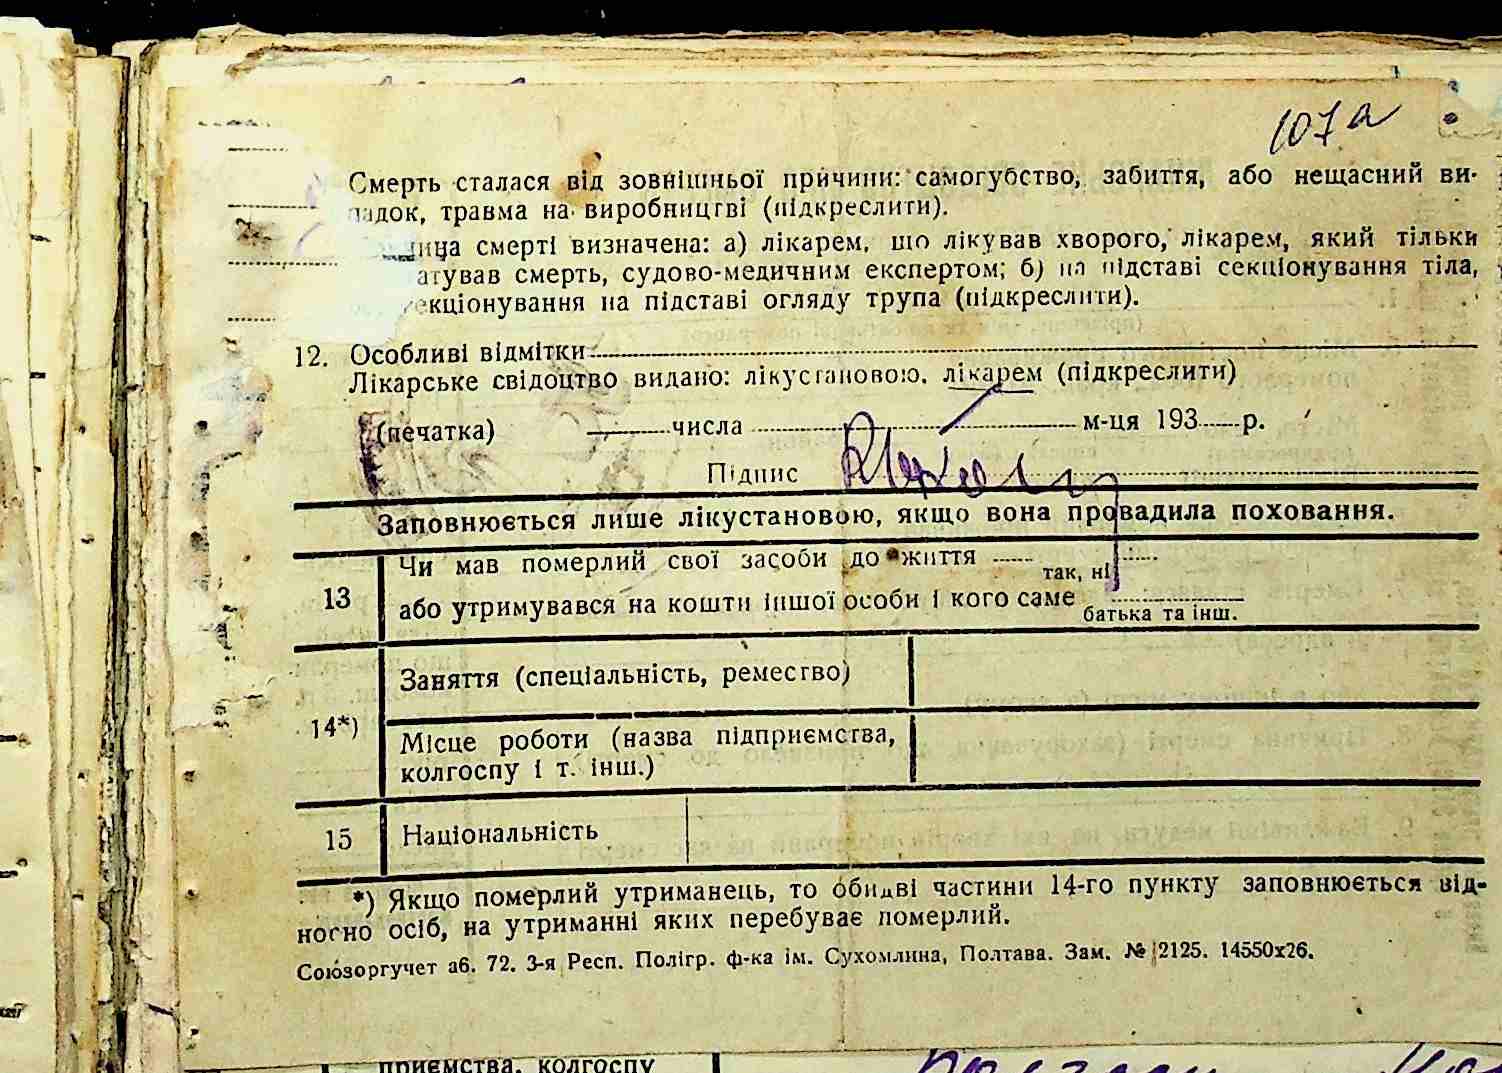 107а
Смерть сталася від зовнішньої причини: самогубство, забиття, або нещасний ви-
падок, травма на виробництві (підкреслити).
смерті визначена: а) лікарем, що лікував хворого, лікарем, який тільки
смерть, судово-медичним експертом; б) на підставі секціонування тіла,
на підставі огляду трупа (підкреслити).
12. Особливі відмітки
Лікарське свідоцтво видано: лікустановою, лікарем (підкреслити)
(печатка) числа м-ця 193 р.
Підпис
Заповнюється лише лікустановою, якщо вона провадила поховання.
13 Чи мав померлий свої засоби до життя
так, ні
або утримувався на кошти іншої особи і кого саме
батька та інш.
Заняття (спеціальність, ремество)
14*)
Місце роботи (назва підприємства,
колгоспу і т. інш.)
15 Національність
*) Якщо померлий утриманець, то обидві частини 14-го пункту заповнюється від-
носно осіб, на утриманні яких перебуває померлий.
Союзоргучет аб. 72. 3-я Респ. Полігр. ф-ка ім. Сухомлина, Полтава. Зам. № 2125. 14550х26.
приємства, колгоспу